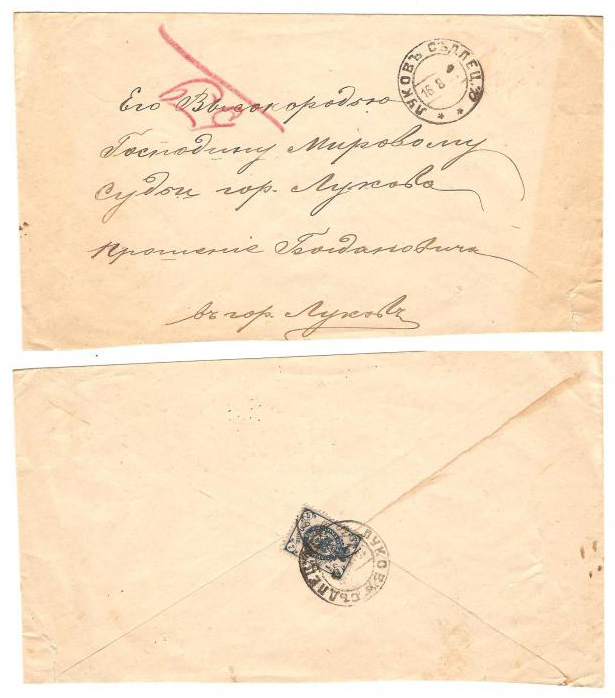 ЛУКОВЪ СѢДЛЕЦ.
16 8
Его Высокородью
Господину Мировому
Судьѣ гор. Лукова
Прошеніе Богдановича
въ гор. Луковъ
ЛУКОВЪ СѢДЛЕЦ